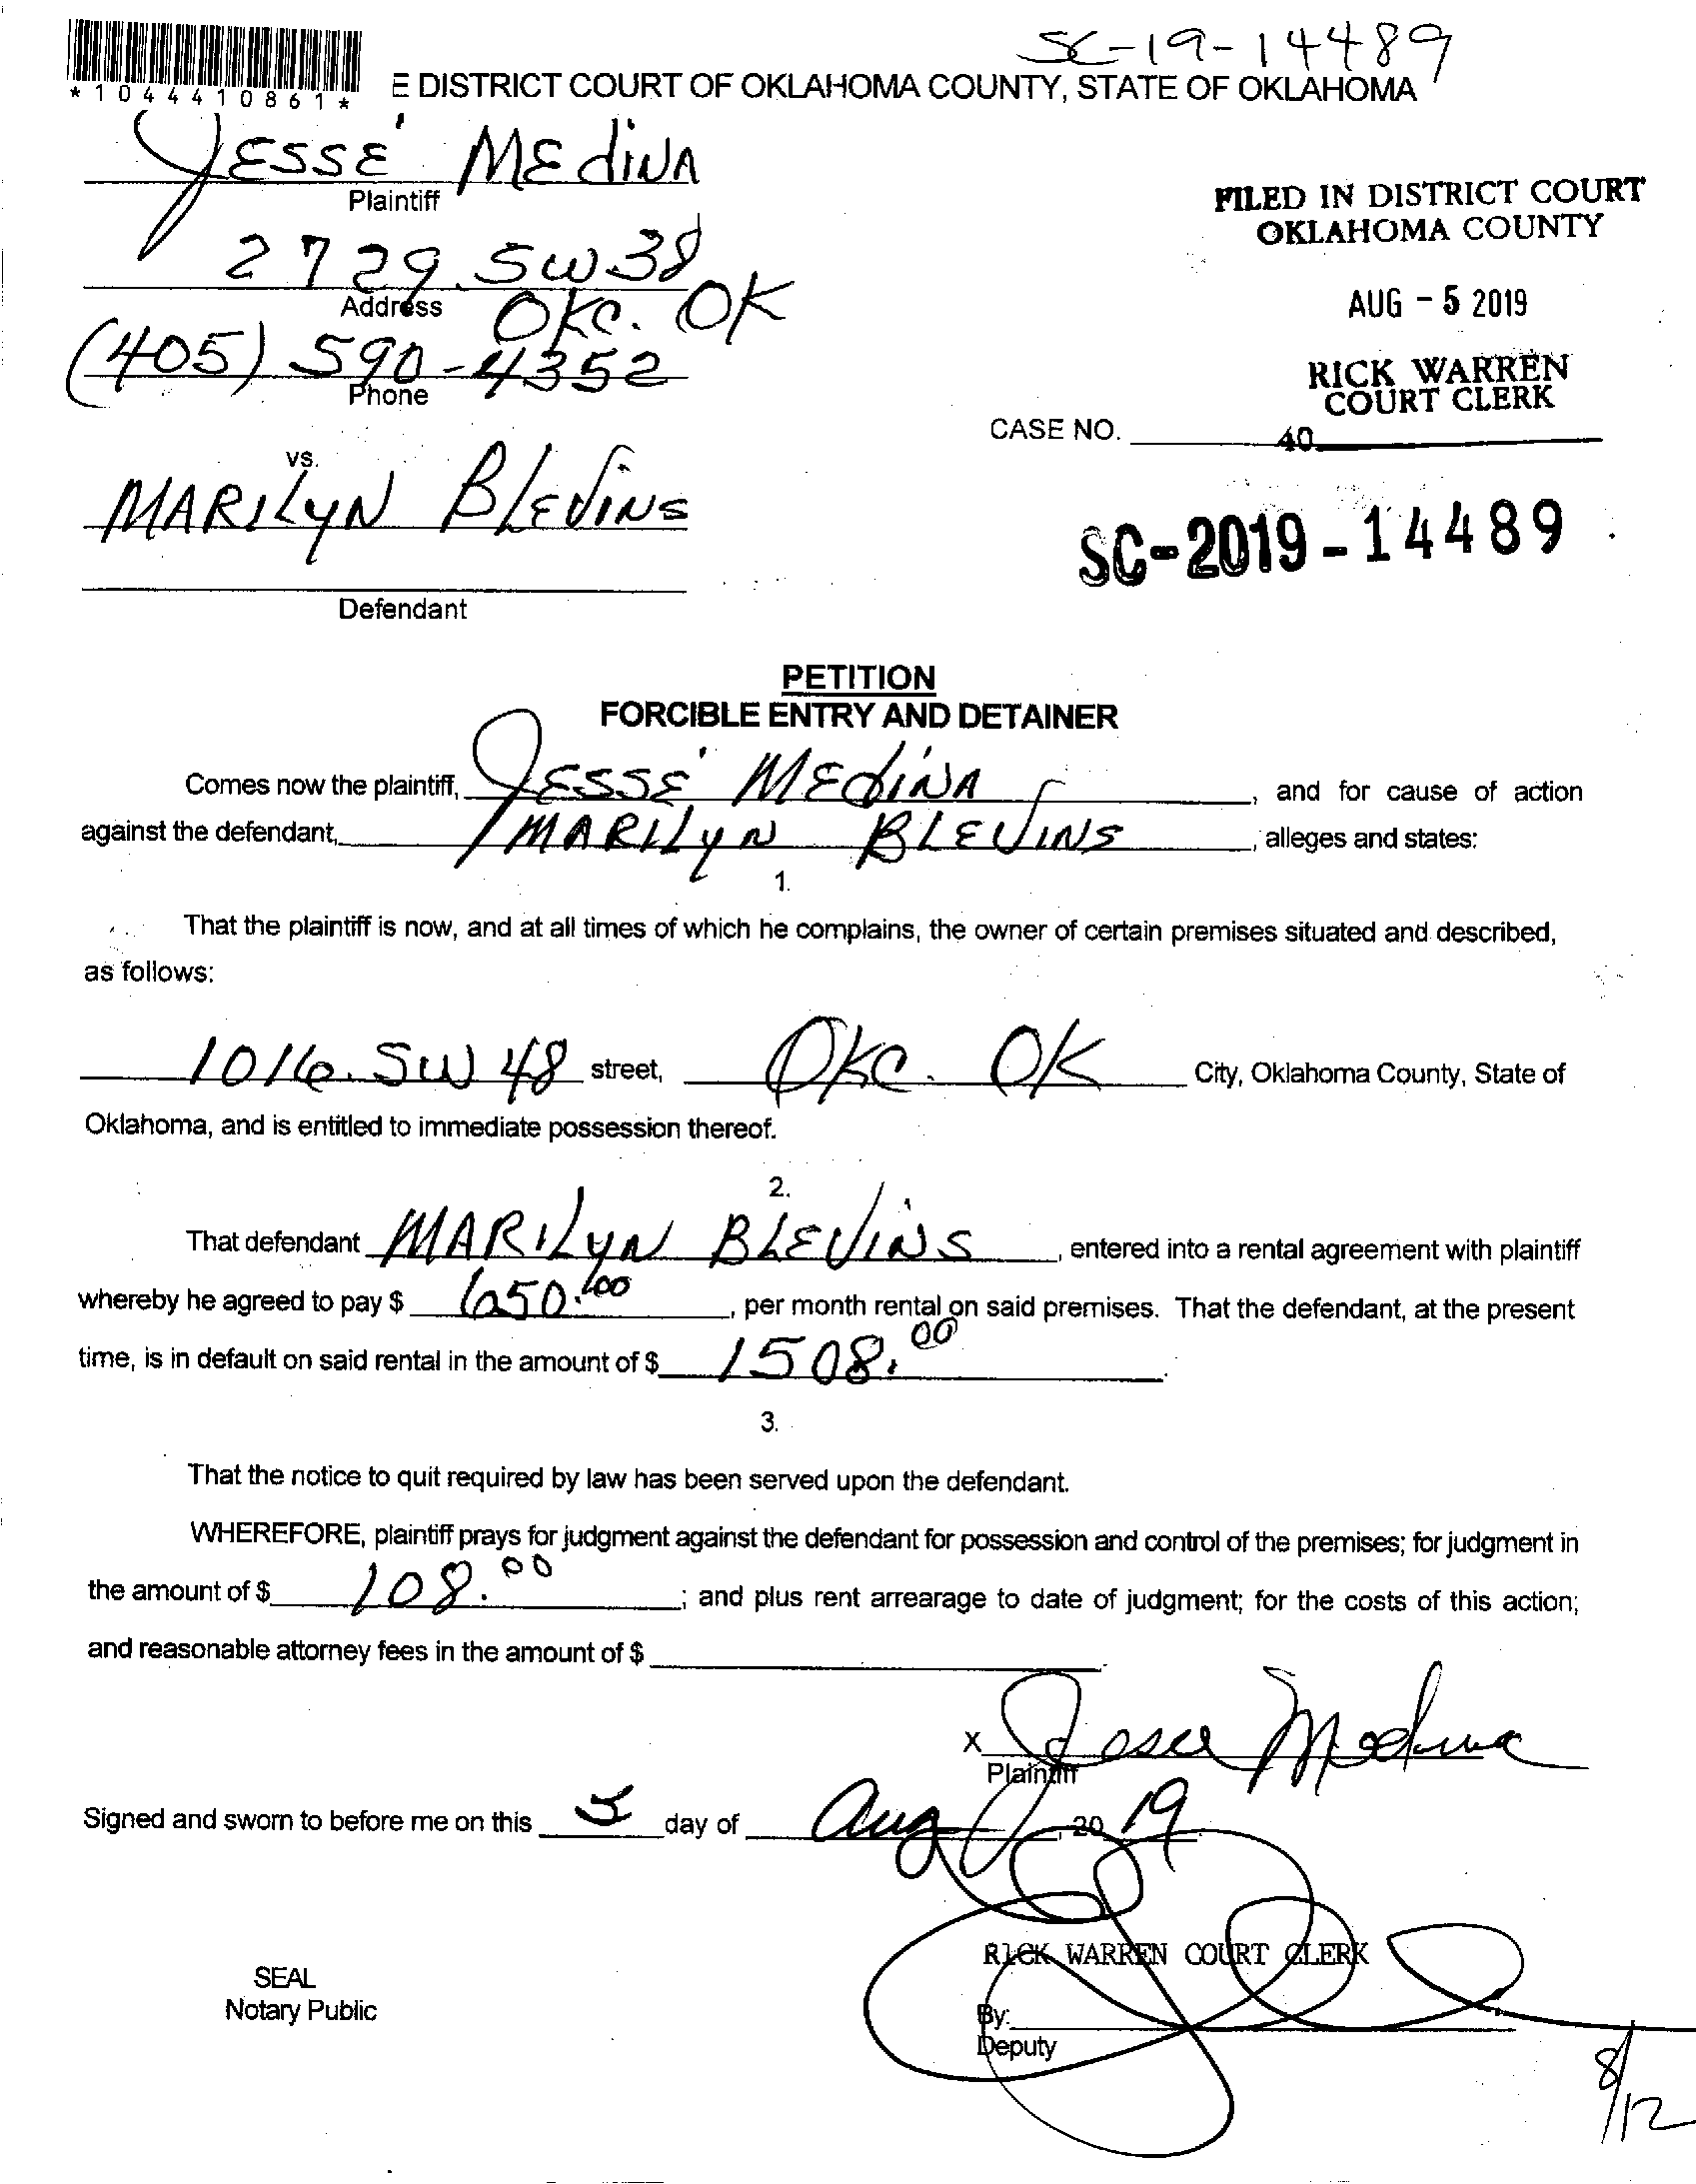 SC-19-14489
*1044410861*
E DISTRICT COURT OF OKLAHOMA COUNTY, STATE OF OKLAHOMA
JESSE MEDINA
Plaintiff
FILED IN DISTRICT COURT
OKLAHOMA COUNTY
2729. SW 38
Address
OKC. OK
AUG - 5 2019
(405) 590-4352
Phone
RICK WARREN
COURT CLERK
CASE NO.
40
vs.
MARILYN BLEVINS
SC-2019-14489
Defendant
PETITION
FORCIBLE ENTRY AND DETAINER
Comes now the plaintiff, JESSE MEDINA, and for cause of action
against the defendant, MARILYN BLEVINS, alleges and states:
1.
That the plaintiff is now, and at all times of which he complains, the owner of certain premises situated and described,
as follows:
1016. SW 48 street, OKC. OK City, Oklahoma County, State of
Oklahoma, and is entitled to immediate possession thereof.
2.
That defendant MARILYN BLEVINS, entered into a rental agreement with plaintiff
whereby he agreed to pay $ 650.00, per month rental on said premises. That the defendant, at the present
time, is in default on said rental in the amount of $ 1508.00.
3.
That the notice to quit required by law has been served upon the defendant.
WHEREFORE, plaintiff prays for judgment against the defendant for possession and control of the premises; for judgment in
the amount of $ 108.00; and plus rent arrearage to date of judgment; for the costs of this action;
and reasonable attorney fees in the amount of $
X Jesse Medina
Plaintiff
Signed and sworn to before me on this 5 day of Aug, 20 19
RICK WARREN COURT CLERK
SEAL
Notary Public
By:
Deputy
8/12